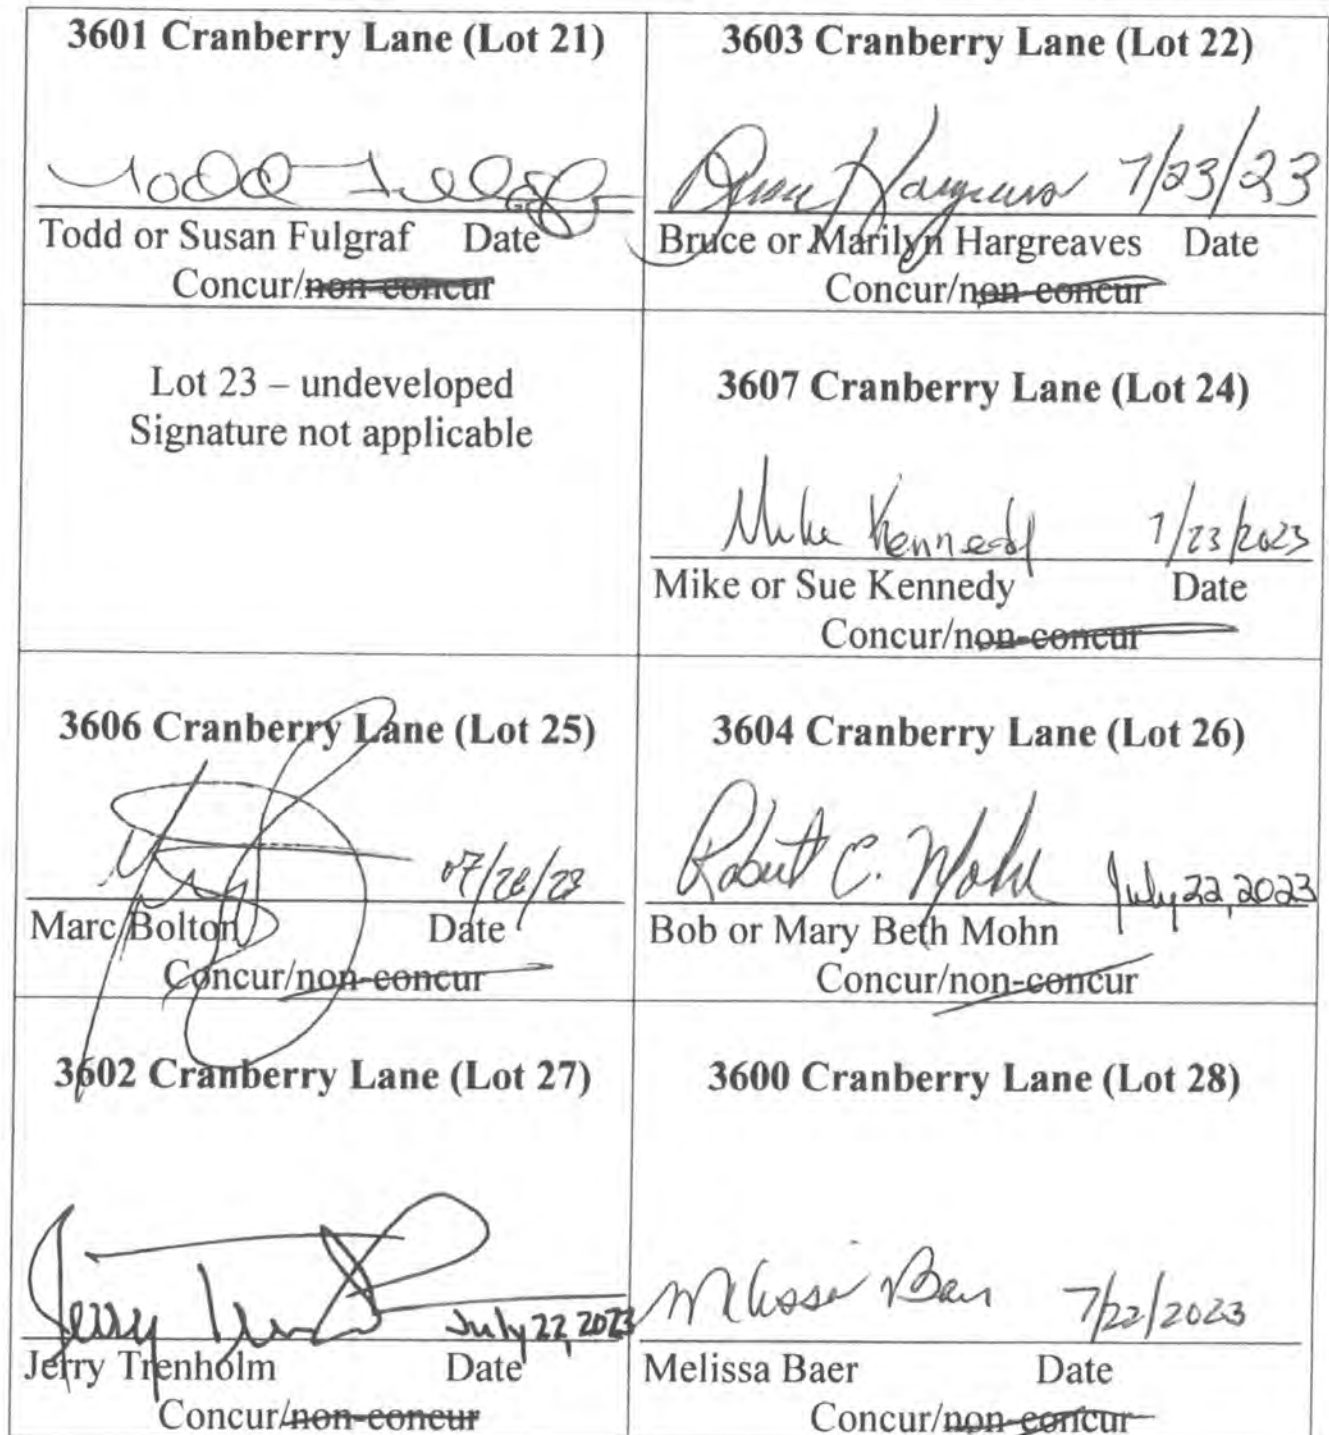 3601 Cranberry Lane (Lot 21)
Todd Fulgraf
Todd or Susan Fulgraf Date
Concur/non-concur
3603 Cranberry Lane (Lot 22)
Bruce Hargreaves 7/23/23
Bruce or Marilyn Hargreaves Date
Concur/non-concur
Lot 23 – undeveloped
Signature not applicable
3607 Cranberry Lane (Lot 24)
Mike Kennedy 7/23/2023
Mike or Sue Kennedy Date
Concur/non-concur
3606 Cranberry Lane (Lot 25)
Marc Bolton Date
Concur/non-concur
3604 Cranberry Lane (Lot 26)
Robert C. Mohn July 22, 2023
Bob or Mary Beth Mohn
Concur/non-concur
3602 Cranberry Lane (Lot 27)
Jerry Trenholm July 22, 2023
Jerry Trenholm Date
Concur/non-concur
3600 Cranberry Lane (Lot 28)
Melissa Baer 7/22/2023
Melissa Baer Date
Concur/non-concur